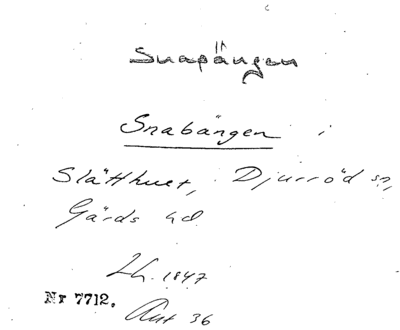 Snapängen
Snabängen i
Slätthuet, Djurröd sn,
Gärds hd.
Lh. 1847
Nr 7712. Akt 36